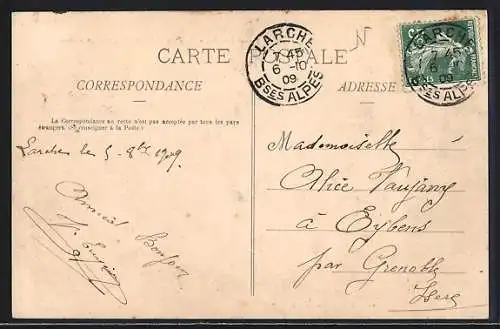 CARTE POSTALE
CORRESPONDANCE
ADRESSE
La Correspondance au recto n'est pas acceptée par tous les pays
étrangers (Se renseigner à la Poste)
LARCHE
7 45
6 -10
09
BSES ALPES
LARCHE
45
09
BSES ALPES
Larche le 5-8bre 1909
Amical Bonjour
Mademoiselle
Alice Vaujany
à Eybens
par Grenoble
Isère